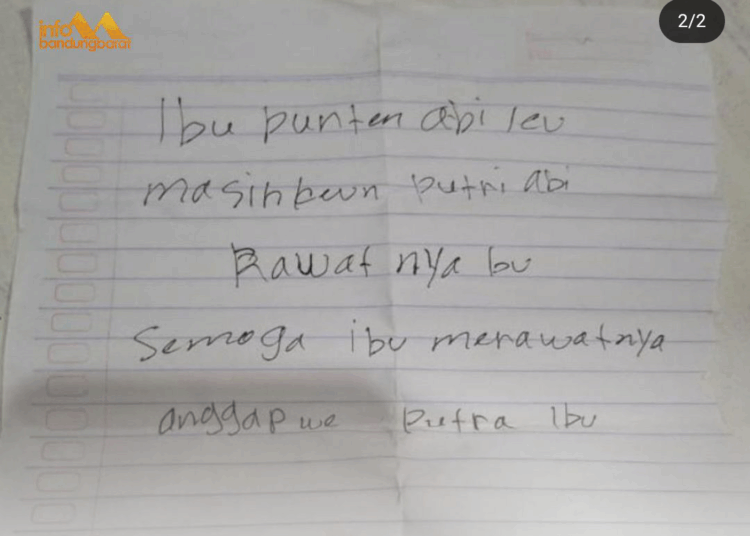 info
bandungbarat
2/2
Ibu punten abi ieu
masihkeun putri abi
Rawat nya bu
Semoga ibu merawatnya
anggap we putra Ibu